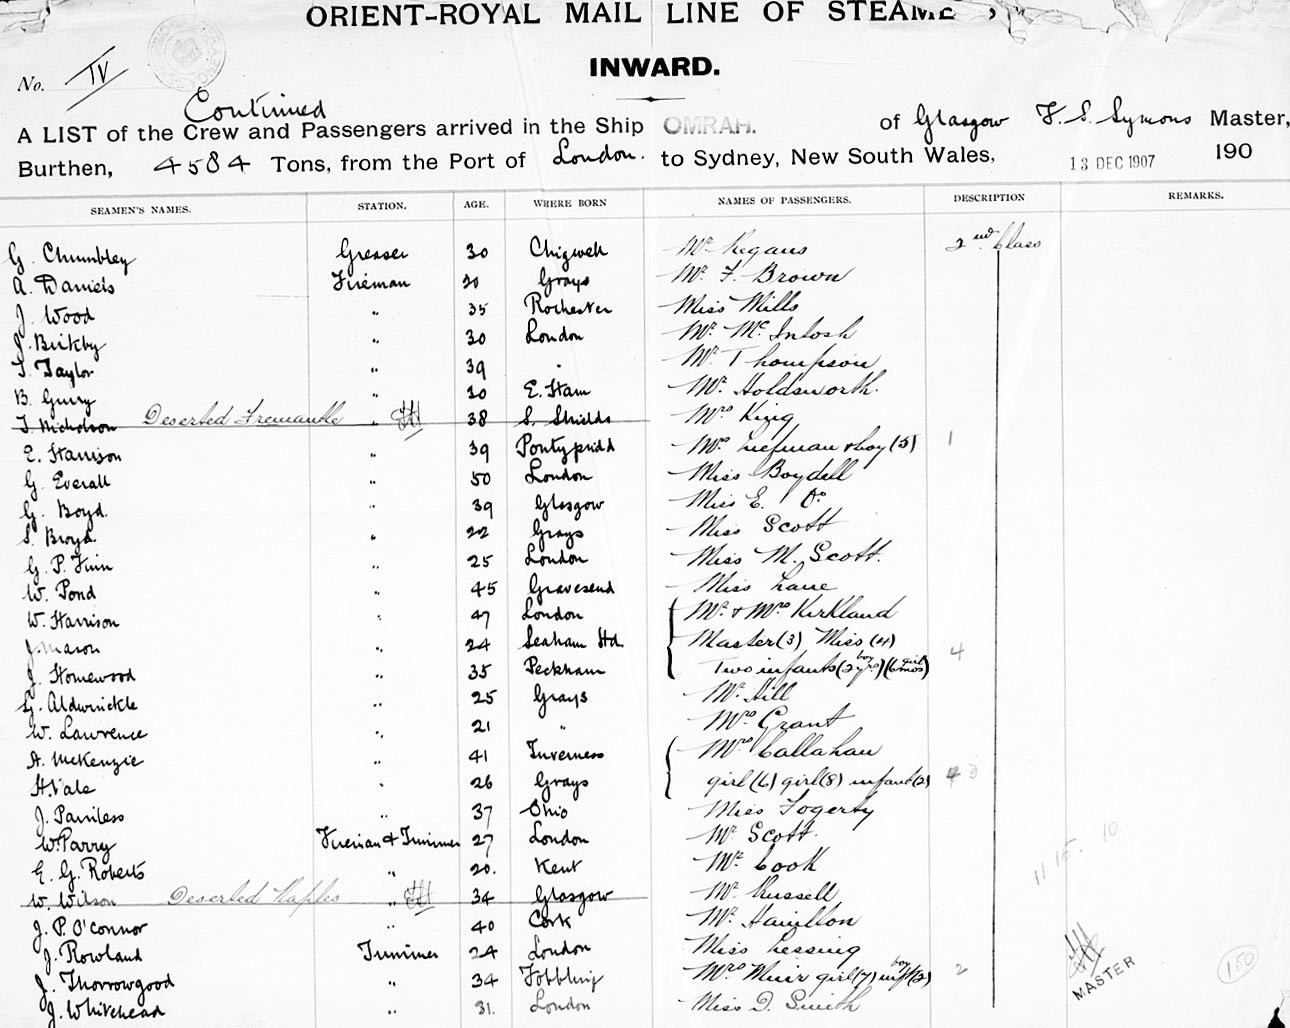 ORIENT-ROYAL MAIL LINE OF
INWARD.
No. IV
Continued
A LIST of the Crew and Passengers arrived in the Ship OMRAH. of Glasgow F. S. Symons Master,
Burthen, 4584 Tons, from the Port of London. to Sydney, New South Wales, 13 DEC 1907 190
SEAMEN'S NAMES. STATION. AGE. WHERE BORN NAMES OF PASSENGERS. DESCRIPTION REMARKS.
G. Chumbley Greaser 30 Chigwell Mr. Kegans 2nd Class
A. Daniels Fireman 20 Grays Mr. F. Brown
J. Wood " 35 Rochester Miss Mills
J. Birkby " 30 London Mr. McIntosh
T. Taylor " 39 " Mr. Thompson
B. Gurry " 30 E. Ham Mr. Holdsworth.
T. Nicholson Deserted Fremantle " 38 S. Shields Mrs King
E. Harrison " 39 Pontypridd Mrs & boy (5) 1
G. Everall " 50 London Miss Boydell
G. Boyd. " 39 Glasgow Miss E. Do
S. Boyd. " 22 Grays Miss Scott
G. P. Finn " 25 London Miss M. Scott.
W. Pond " 45 Gravesend Miss Lane
W. Harrison " 47 London Mr. & Mrs Kirkland
J. Mason " 24 Seaham Hd. Master (3) Miss (4) 4
J. Homewood " 35 Peckham Two infants (2 yrs boy) (6 mos girl)
G. Aldwinckle " 25 Grays Mr. Hill
W. Lawrence " 21 " Mrs Grant
A. McKenzie " 41 Inverness Mrs Callahan
H. Vale " 26 Grays girl (6) girl (8) infant (2) 3
J. Painless " 37 Ohio Miss Fogerty
W. Parry Fireman & Trimmer 27 London Mr. Scott.
E. G. Roberts " 20. Kent Mr. Cook
W. Wilson Deserted Naples " 34 Glasgow Mr. Russell
J. P. O'Connor " 40 Cork Mr. Hamilton
J. Rowland Trimmer 24 London Miss Lessing
J. Thorrowgood " 34 Mrs Muir girl (7) inft boy (2) 2 MASTER 150
J. Whitehead " 31. London Miss D. Smith